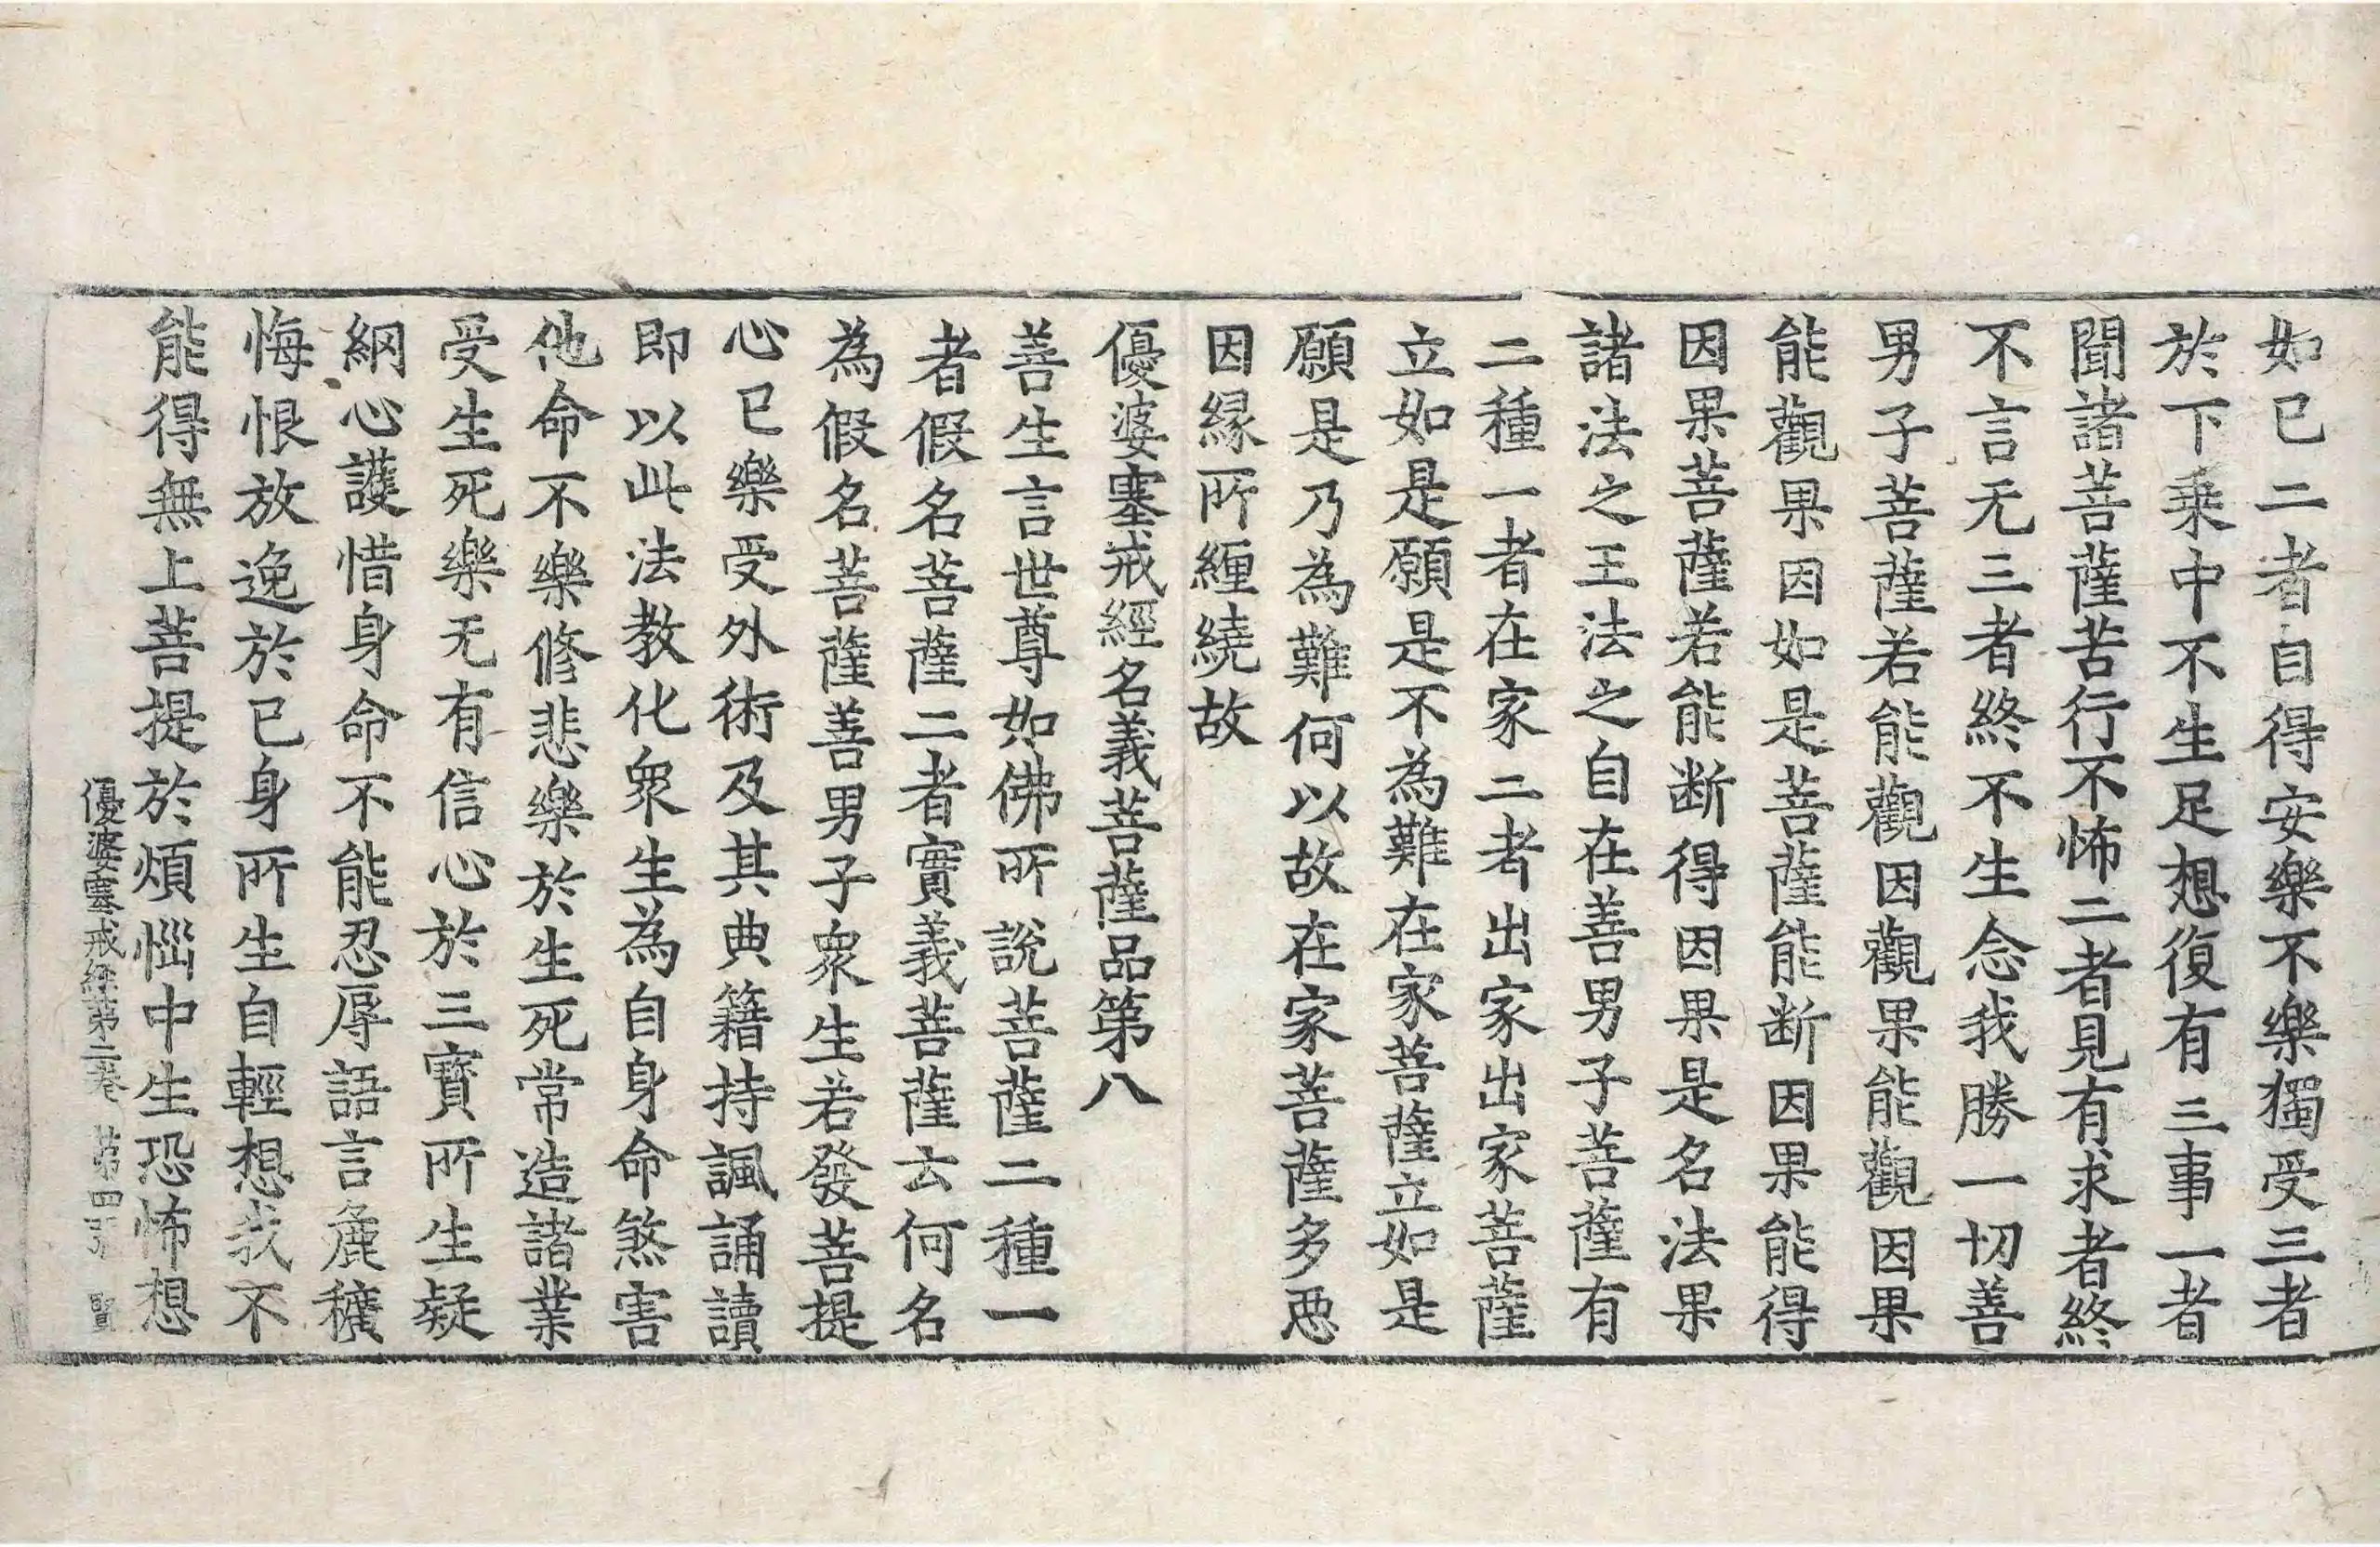 如已二者自得安樂不樂獨受三者
於下乗中不生足想復有三事一者
聞諸菩薩苦行不怖二者見有求者終
不言无三者終不生念我勝一切善
男子菩薩若能觀因觀果能觀因果
能觀果因如是菩薩能断因果能得
因果菩薩若能断得因果是名法果
諸法之王法之自在善男子菩薩有
二種一者在家二者出家出家菩薩
立如是願是不為難在家菩薩立如是
願是乃為難何以故在家菩薩多惡
因縁所纏繞故
優婆塞戒經名義菩薩品第八
善生言世尊如佛所說菩薩二種一
者假名菩薩二者實義菩薩云何名
為假名菩薩善男子衆生若發菩提
心已樂受外術及其典籍持諷誦讀
即以此法教化衆生為自身命煞害
他命不樂修悲樂於生死常造諸業
受生死樂无有信心於三寳所生疑
網心護惜身命不能忍辱語言麁穬
悔恨放逸於已身所生自輕想我不
能得無上菩提於煩惱中生恐怖想
優婆塞戒經第二卷 第四張 賢